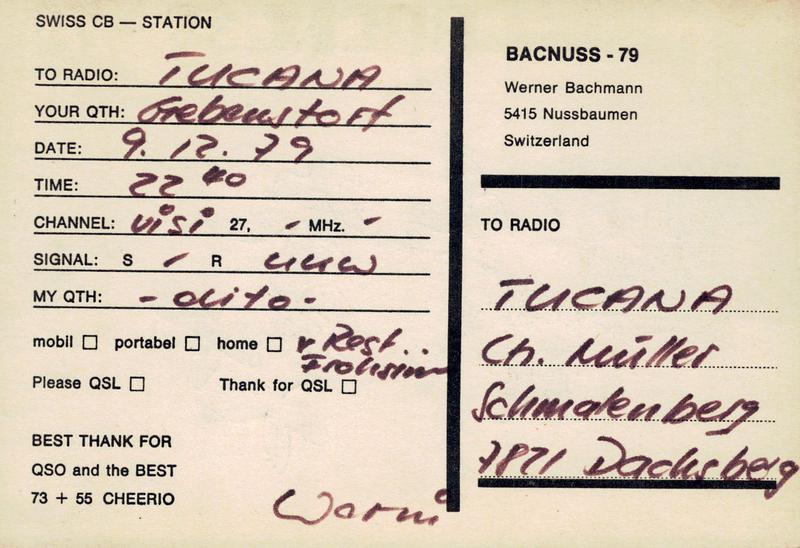 SWISS CB — STATION
TO RADIO: TUCANA
YOUR QTH: Gebenstorf
DATE: 9. 12. 79
TIME: 22 40
CHANNEL: visi 27, - MHz. -
SIGNAL: S - R uuw
MY QTH: - dito -
mobil □ portabel □ home □ v Rest.
Frohsinn
Please QSL □ Thank for QSL □
BEST THANK FOR
QSO and the BEST
73 + 55 CHEERIO
Warni
BACNUSS - 79
Werner Bachmann
5415 Nussbaumen
Switzerland
TO RADIO
TUCANA
Ch. Müller
Schmalenberg
7821 Dachsberg